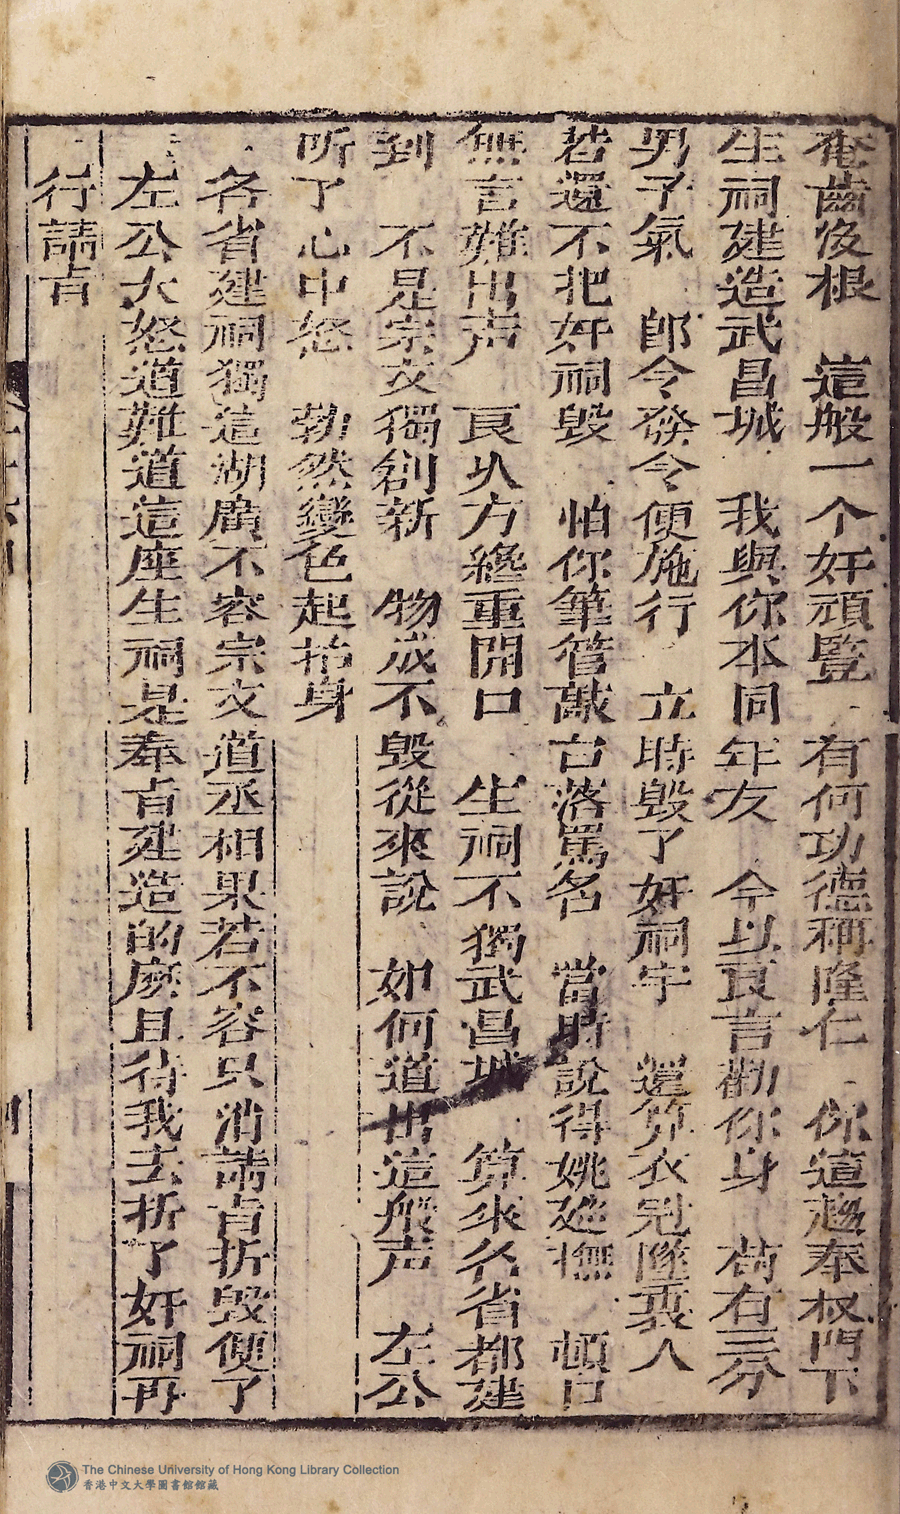 奄齒沒根　這般一个奸頑竪　有何功德称隆仁　你道趨奉权門下
生祠建造武昌城　我與你本同年友　今以良言勸你身　苟有三分
男子氣　郎令發令便施行　立時毁了奸祠宇　還算衣冠隊裏人
若還不把奸祠毁　怕你筆管敲台落罵名　當時說得姚廵撫　頓口
無言難出声　良久方纔重開口　生祠不獨武昌城　算來各省都建
到　不是宗文獨創新　物成不毁從來說　如何道出這般声　左公
听了心中怒　勃然變色起抬身
各省建祠獨這湖廣不容宗文道丞相果若不容只消請旨折毁便了
左公大怒道難道這座生祠是奉旨建造的麽且待我去折了奸祠再
行請旨
The Chinese University of Hong Kong Library Collection
香港中文大學圖書館館藏